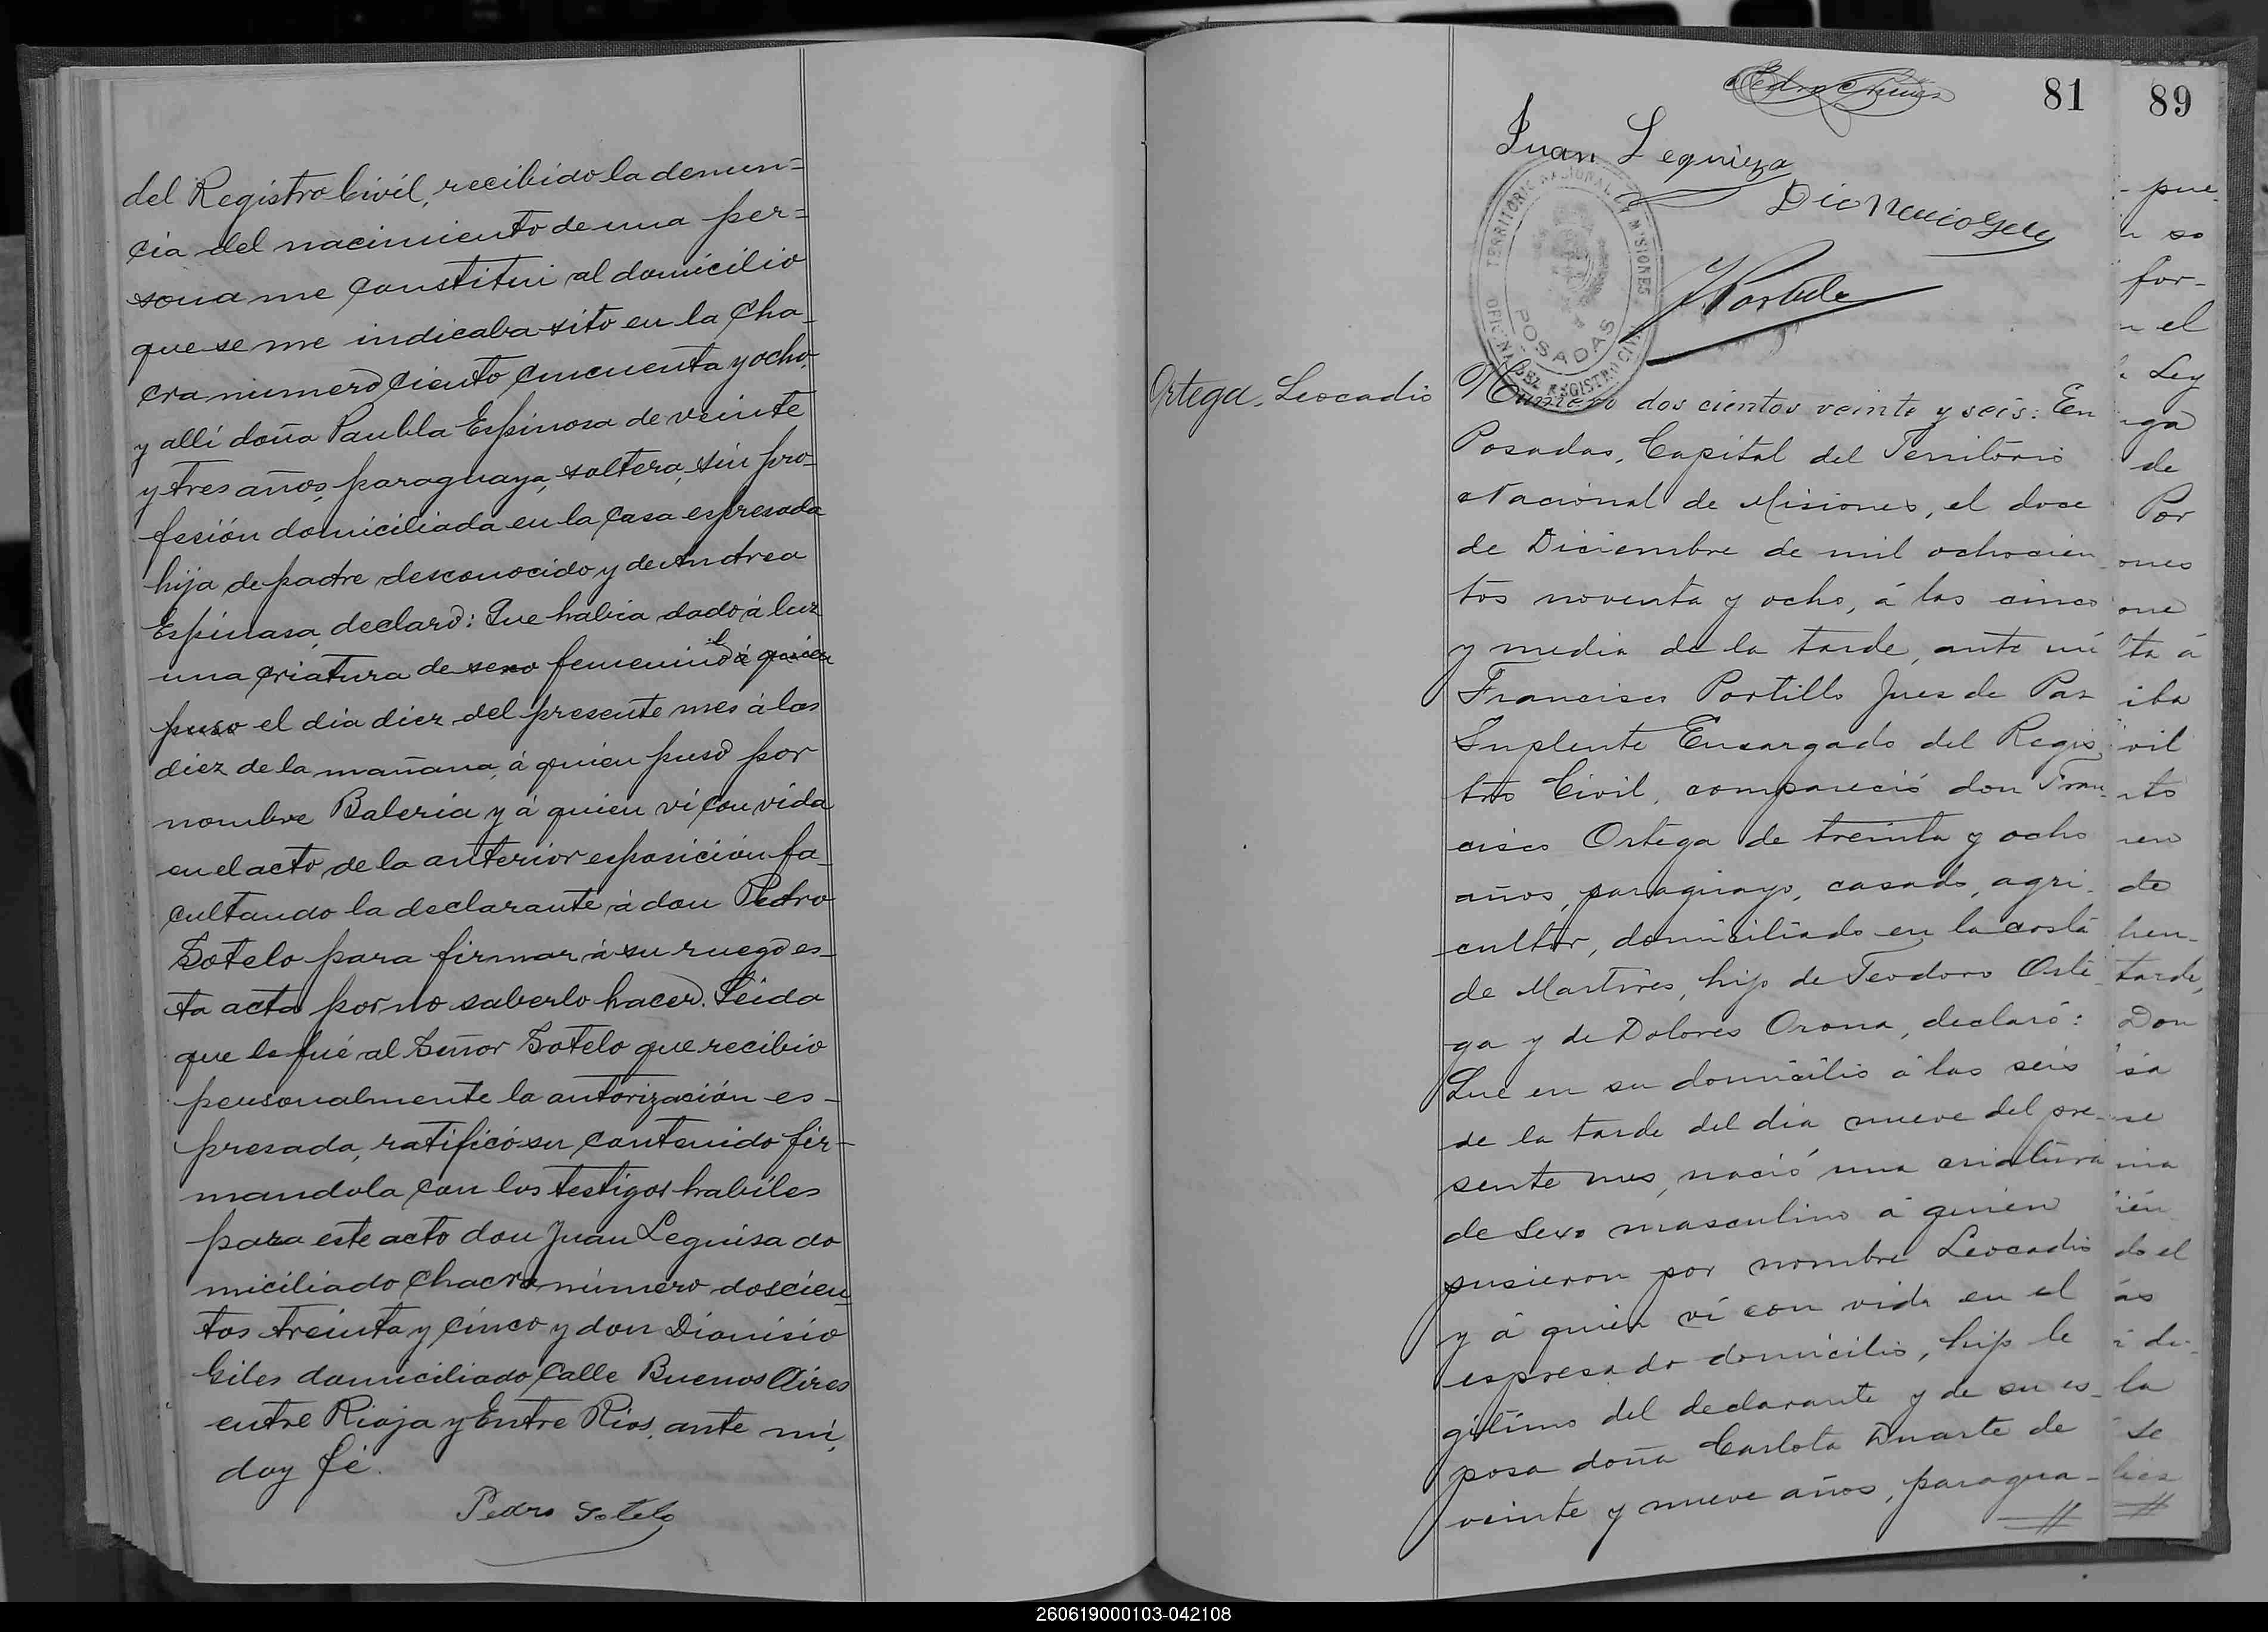 del Registro Civil, recibido la denun=
cia del nacimiento de una per=
sona me constitui al domicilio
que se me indicaba sito en la cha_
cra numero ciento cincuenta y ocho,
y allí doña Paubla Espinosa de veinte
y tres años, paraguaya, soltera, sin pro_
fesión domiciliada en la casa espresada
hija de padre desconocido y de Andrea
Espinasa, declaro: Que habia dado á luz
una criatura de sexo femenino á quien
puso el dia diez del presente mes á las
diez de la mañana, á quien puso por
nombre Baleria y á quien ví con vida
en el acto de la anterior esposición fa_
cultando la declarante á don Pedro
Sotelo para firmar á su ruego es_
ta acta por no saberlo hacer. Leida
que le fué al Señor Sotelo que recibio
personalmente la autorización es_
presada, ratificó su contenido fir_
mandola con los testigos habiles
para este acto don Juan Leguisa do
miciliado chacra número doscien_
tos treinta y cinco y don Dionisio
Giles domiciliado Calle Buenos Aires
entre Rioja y Entre Rios, ante mí,
doy fé.
Pedro Sotelo
81
Juan Leguiza
TERRITORIO NACIONAL DE MISIONES
POSADAS
OFICINA DEL REGISTRO CIVIL
Ortega, Leocadio
Numero dos cientos veinte y seis: En
Posadas, Capital del Territorio
Nacional de Misiones, el doce
de Diciembre de mil ochocien_
tos noventa y ocho, á las cinco
y media de la tarde, ante mí
Francisco Portillo Jues de Paz
Suplente Encargado del Regis_
tro Civil, compareció don Fran_
cisco Ortega de treinta y ocho
años, paraguayo, casado, agri_
cultor, domiciliado en la costa
de Martires, hijo de Teodoro Orte_
ga y de Dolores Orona, declaró:
Que en su domicilio á las seis
de la tarde del día nueve del pre_
sente mes, nació una criatura
de sexo masculino á quien
pusieron por nombre Leocadio
y á quien ví con vida en el
espresado domicilio, hijo le
gitimo del declarante y de su es_
posa doña Carlota Duarte de
veinte y nueve años, paragua_
89
pue
so
for_
el
Ley
ga
de
Por
ones
one
ta á
iba
vil
nto
ren
de
hen_
tarde,
Don
sa
se
una
ién
do el
ás
di_
la
se
260619000103-042108